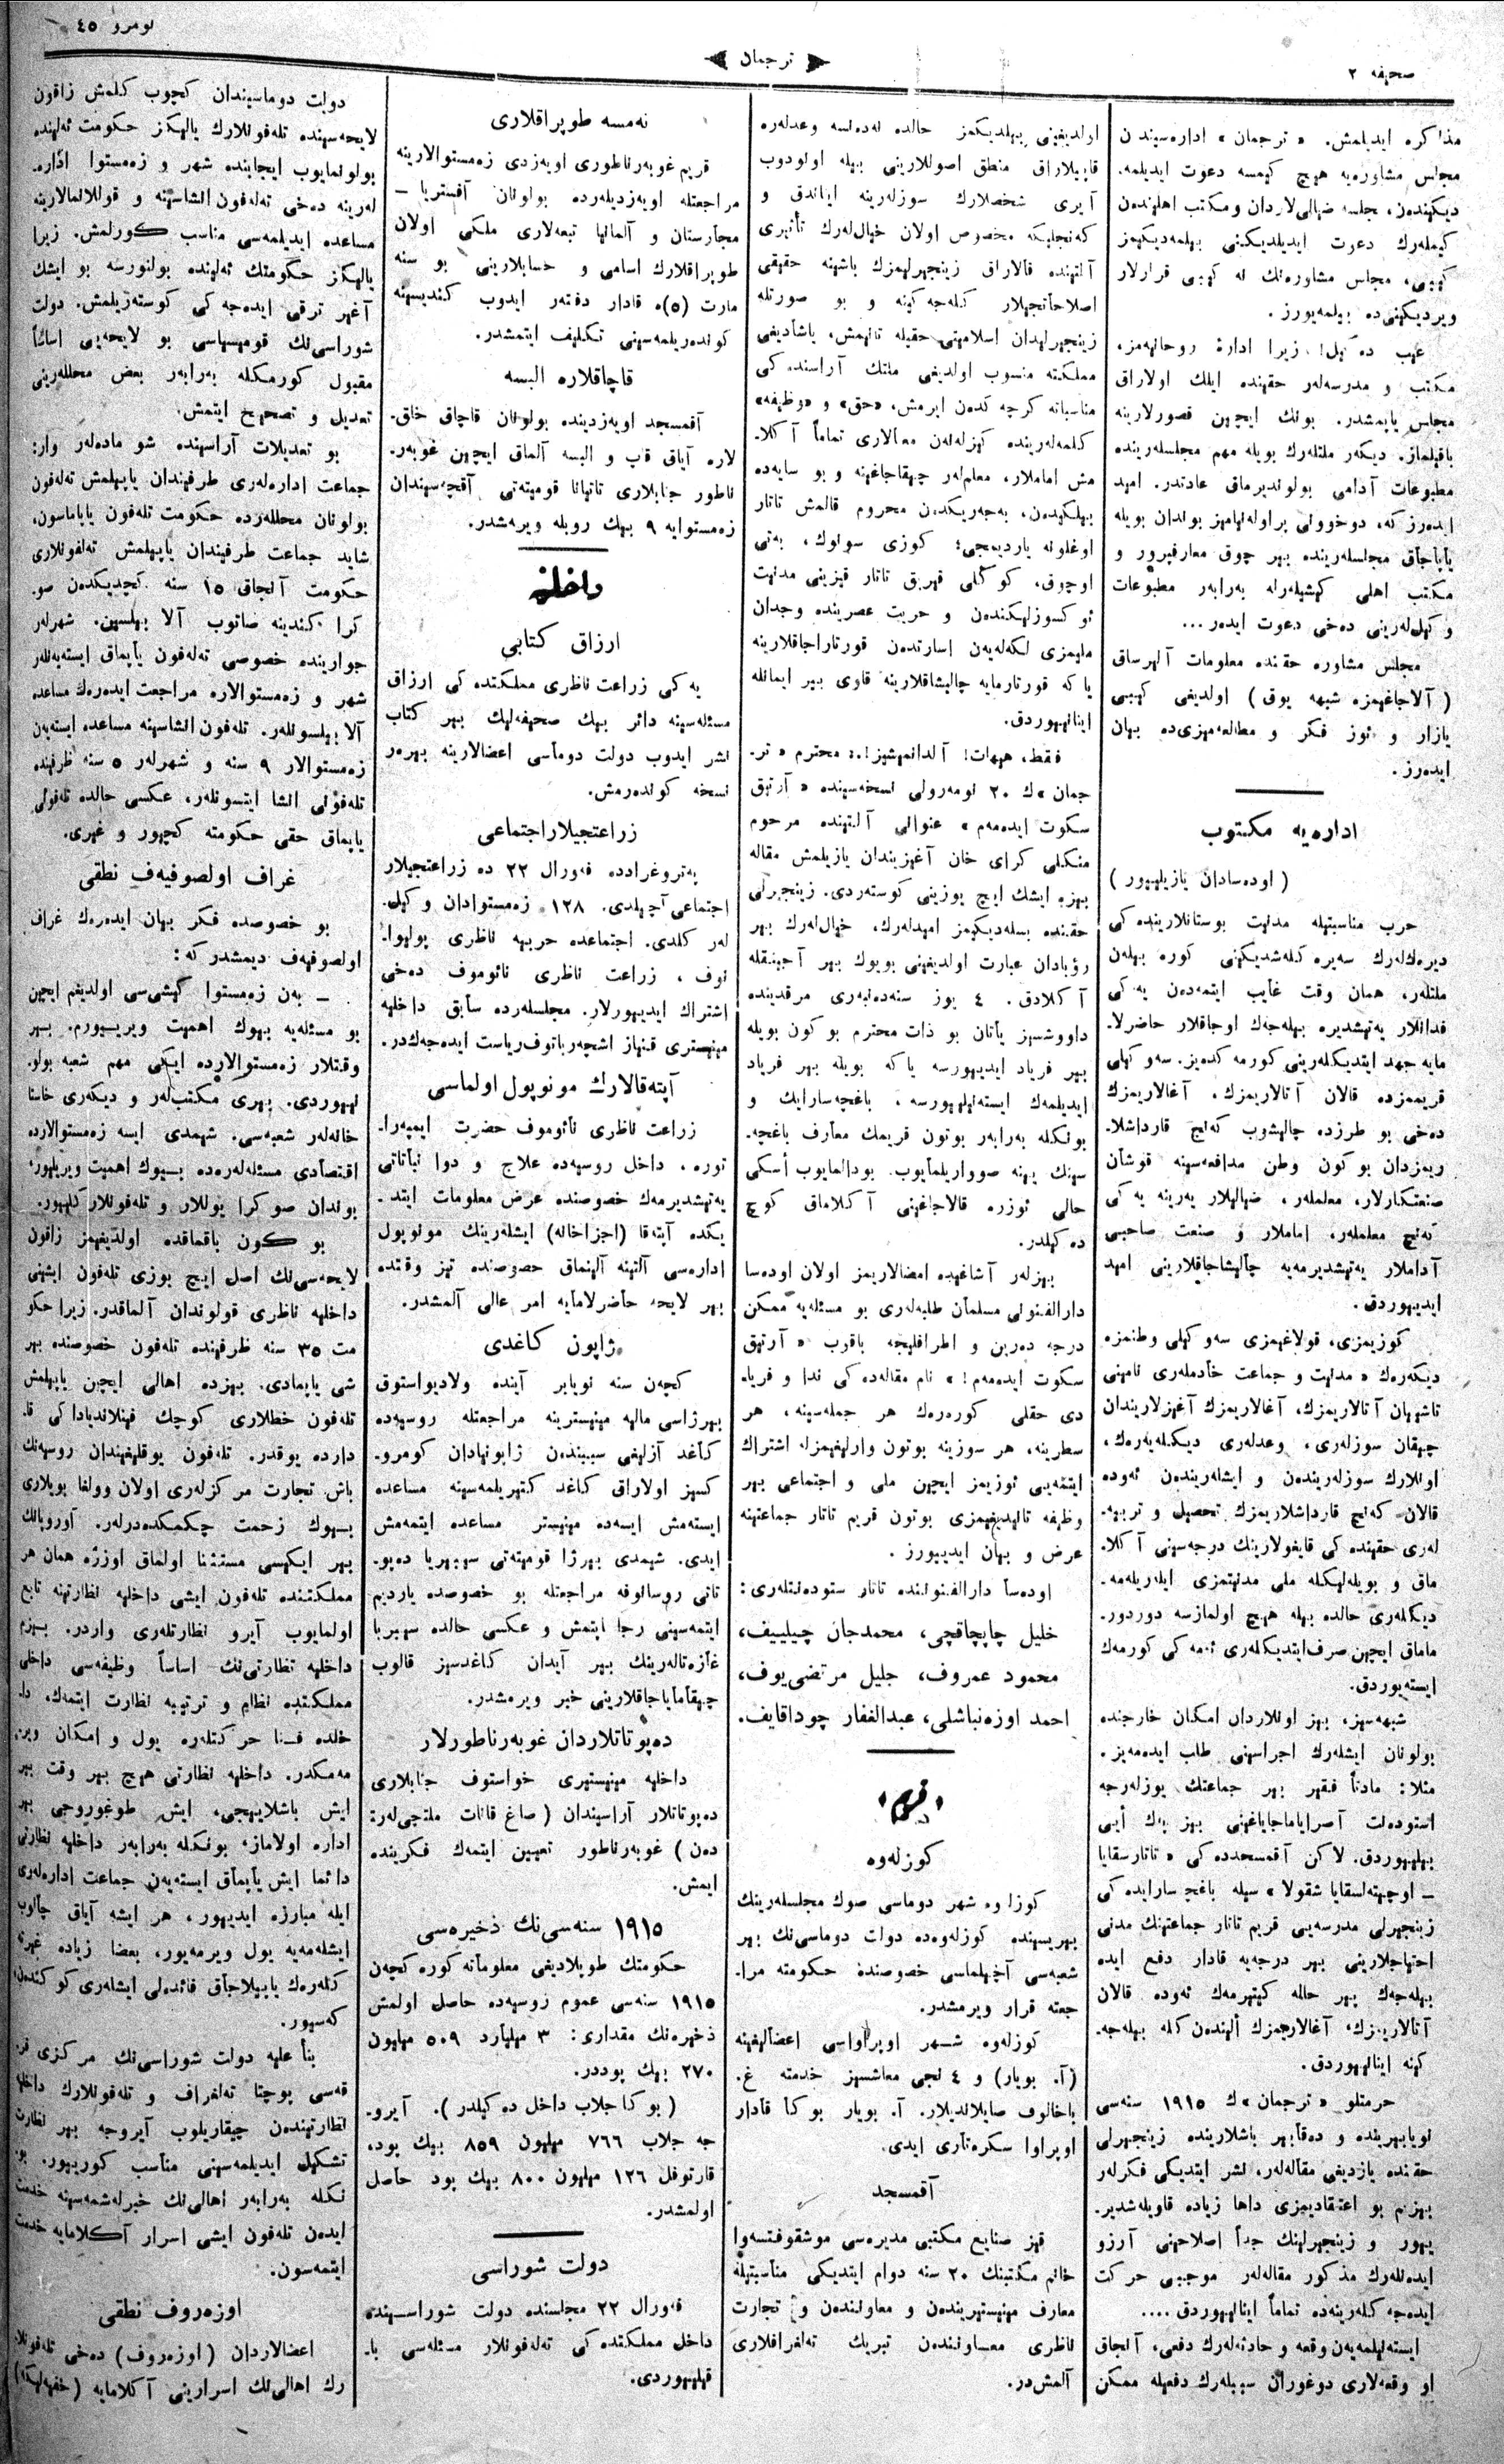 صحیفه ٢
ترجمان
نومرو ٤٥
مذاكره ایدیلمش. « ترجمان » اداره‌سیندن
مجلس مشاوره‌یه هیچ كیمسه دعوت ایدیلمه.
دیكیندن، جلسه ضیالی‌لاردان ومكتب اهلیندن
كیمله‌رك دعوت ایدیلدیكنی بیلمه‌دیكیمز
كیبی، مجلس مشاوره‌نك نه كیبی قرارلار
ویردیكینی‌ده بیلمه‌یورز.
عیب ده‌كیل! زیرا ادارۀ روحانیه‌مز،
مكتب و مدرسه‌له‌ر حقینده ایلك اولاراق
مجلس یاپمشدر. بونك ایچین قصورلارینه
باقیلماز. دیكه‌ر ملتله‌رك بویله مهم مجلسله‌رینده
مطبوعات آدامی بولوندیرماق عادتدر. امید
ایده‌رز كه، دوخوونی پراوله‌نیامیز بوندان بویله
یاپاجاق مجلسله‌رینده بیر چوق معارفپرور و
مكتب اهلی كیشیله‌رله به‌رابه‌ر مطبوعات
وكیل‌له‌رینی ده‌خی دعوت ایده‌ر...
مجلس مشاوره حقنده معلومات آلیرساق
( آلاجاغیمزه شبهه یوق ) اولدیغی كیبی
یازار و ئوز فكر و مطالعه‌میزی‌ده بیان
ایده‌رز.
اداره‌یه مكتوب
( اوده‌سادان یازیلییور )
حرب مناسبتیله مدنیت بوستانلارینده‌كی
دیره‌ك‌له‌رك سه‌یره كله‌شدیكینی كوره بیله‌ن
ملتله‌ر، همان وقت غایب ایتمه‌دن یه‌كی
فدانلار یه‌تیشدیره بیله‌جه‌ك اوجاقلار حاضرلا.
مایه جهد ایتدیكله‌رینی كورمه‌كده‌یز. سه‌وكیلی
قریممزده قالان آتالاریمزك، آغالاریمزك
ده‌خی بو طرزده چالیشوب كه‌نج قارداشلا.
ریمزدان بوكون وطن مدافعه‌سینه قوشان
صنعتكارلار، معلمله‌ر، ضیالیلار یه‌رینه یه‌كی
كه‌نج معلمله‌ر، اماملار و صنعت صاحبی
آداملار یه‌تیشدیرمه‌یه چالیشاجاقلارینی امید
ایدییوردق.
كوزیمزی، قولاغیمزی سه‌وكیلی وطنمزه
دیكه‌ره‌ك « مدنیت و جماعت خادمله‌ری نامینی
تاشییان آتالاریمزك، آغالاریمزك آغیزلاریندان
چیقان سوزله‌ری، وعدله‌ری دیكله‌یه‌ره‌ك،
اونلارك سوزله‌ریندن و ایشله‌ریندن ئه‌وده
قالان كه‌نج قارداشلاریمزك تحصیل و تربیه.
له‌ری حقینده‌كی قایغولارینك درجه‌سینی آكلا.
ماق و بویله‌لیكله ملی مدنیتمزی ایله‌ریله‌مه.
دیكله‌ری حالده بیله هیچ اولمازسه دوردور.
ماماق ایچین صرف‌ایتدیكله‌ری ئه‌مه‌كی كورمه‌ك
ایسته‌یوردق.
شبهه‌سیز، بیز اونلاردان امكان خارجنده
بولونان ایشله‌رك اجراسینی طلب ایده‌مه‌یز.
مثلا: ماداً فقیر بیر جماعتك یوزله‌رجه
استوده‌نت آصرایاماجایاغینی بیز پك أیی
بیلییوردق. لاكن آقمسجدده‌كی « تاتارسقایا
ــ اوچیته‌لسقایا شقولا » سیله باغچه‌سارایده‌كی
زینجیرلی مدرسه‌یی قریم تاتار جماعتینك مدنی
احتیاجلارینی بیر درجه‌یه قادار دفع ایده
بیله‌جه‌ك بیر حاله كیتیرمه‌ك ئه‌وده قالان
آتالاریمزك، آغالاریمزك ألینده‌ن كله بیله‌جه.
كینه اینانییوردق.
حرمتلو « ترجمان »ك ١٩١٥ سنه‌سی
نویابیرینده و ده‌قابیر باشلارینده زینجیرلی
حقنده یازدیغی مقاله‌له‌ر، نشر ایتدیكی فكرله‌ر
بیزیم بو اعتقادیمزی داها زیاده قاویله‌شدیر.
ییور و زینجیرلینك جداً اصلاحینی آرزو
ایده‌نله‌رك مذكور مقاله‌له‌ر موجیبی حركت
ایده‌جه‌كله‌رینه‌ده تماماً اینانییوردق....
ایسته‌نیلمه‌یه‌ن وقعه و حادثه‌له‌رك دفعی، آنجاق
او وقعه‌لاری دوغوران سببله‌رك دفعیله ممكن
اولدیغینی بیلدیكیمز حالده نه‌ده‌نسه وعدله‌ره
قاپیلاراق منطق اصوللارینی بیله اونودوب
آیری شخصلارك سوزله‌رینه ایناندق و
كه‌نجلیكه مخصوص اولان خیال‌له‌رك تأثیری
آلتینده قالاراق زینجیرلیمزك باشینه حقیقی
اصلاحاتجیلار كله‌جه‌كینه و بو صورتله
زینجیرلیدان اسلامیتی حقیله تانیمش، یاشادیغی
مملكتنه منسوب اولدیغی ملتك آراسنده‌كی
مناسباته كرچه‌كدن ایرمش، «حق» و «وظیفه»
كلمه‌له‌رینده كیزله‌نه‌ن معنالاری تماماً آكلا.
مش اماملار، معلم‌له‌ر چیقاجاغینه و بو سایه‌ده
بیلكیدن، به‌جه‌ریكدن محروم قالمش تاتار
اوغلونه یاردیمجی؛ كوزی سولوك، به‌نی
اوچوق، كوكلی قیریق تاتار قیزینی مدنیت
ئوكسوزلیكندن و حریت عصرینده وجدان
ملیمزی لكه‌له‌یه‌ن اسارتدن قورتاراجاقلارینه
یاكه قورتارمایه چالیشاقلارینه قاوی بیر ایمانله
اینانییوردق.
فقط، هیهات! آلدانمیشیز!.: محترم « تر.
جمان »ك ٢٠ نومه‌رولی نسخه‌سینده « آرتیق
سكوت ایده‌مه‌م » عنوانی آلتینده مرحوم
منكلی كرای خان آغیزیندان یازیلمش مقاله
بیزه ایشك ایچ یوزینی كوسته‌ردی. زینجیرلی
حقنده بسله‌دیكیمز امیدله‌رك، خیال‌له‌رك بیر
رؤیادان عبارت اولدیغینی بویوك بیر آجینقله
آكلادق. ٤ یوز سنه‌ده‌نبه‌ری مرقدینده
داووشسیز یاتان بو ذات محترم بوكون بویله
بیر فریاد ایدییورسه یاكه بویله بیر فریاد
ایدیلمه‌ك ایسته‌نیلییورسه، باغچه‌سارایك و
بونكله به‌رابه‌ر بوتون قریمك معارف باغچه.
سینك یینه صوواریلمایوب. بودانمایوب أسكی
حالی ئوزره قالاجاغینی آكلاماق كوچ
ده‌كیلدر.
بیزله‌ر آشاغیده امضالاریمز اولان اوده‌سا
دارالفنونی مسلمان طلبه‌له‌ری بو مسئله‌یه ممكن
درجه ده‌رین و اطرافلیجه باقوب « آرتیق
سكوت ایده‌مه‌م! » نام مقاله‌ده‌كی ندا و فریا.
دی حقلی كوره‌ره‌ك هر جمله‌سینه، هر
سطرینه، هر سوزینه بوتون وارلیغیمزله اشتراك
ایتمه‌یی ئوزیمز ایچین ملی و اجتماعی بیر
وظیفه تانیدیغیمزی بوتون قریم تاتار جماعتینه
عرض و بیان ایدییورز.
اوده‌سا دارالفنوننده تاتار ستوده‌نتله‌ری:
خلیل چاپچاقچی، محمدجان چیلیییف،
محمود عمروف، جلیل مرتضی‌یوف،
احمد اوزه‌نباشلی، عبدالغفار چوداقایف.
قریم
كوزله‌وه
كوزله‌وه شهر دوماسی صوك مجلسله‌رینك
بیریسینده كوزله‌وه‌ده دوات دوماسی‌نك بیر
شعبه‌سی آچیلماسی خصوصنده حكومته مرا.
جعته قرار ویرمشدر.
كوزله‌وه شهر اوپراواسی اعضالیغینه
(آ. بویار) و ٤ نجی معاشسیز خدمته غ.
باخالوف صایلاندیلار. آ. بویار بوكا قادار
اوپراوا سكره‌تاری ایدی.
آقمسجد
قیز صنایع مكتبی مدیره‌سی موشقوفتسه‌وا
خانم مكتبینك ٢٠ سنه دوام ایتدیكی مناسبتیله
معارف مینیستیریندن و معاونندن و تجارت
ناظری معاونندن تبریك ته‌لغرافلاری
آلمش‌در.
نه‌مسه طوپراقلاری
قریم غوبه‌رناطوری اویه‌زدی زه‌مستوالارینه
مراجعتله اویه‌زدیله‌رده بولونان آفستریا –
مجارستان و آلمانیا تبعه‌لاری ملكی اولان
طوپراقلارك اسامی و حسابلارینی بو سنه
مارت (٥)ه قادار دفته‌ر ایدوب كندیسینه
كونده‌ریلمه‌سینی تكلیف ایتمشدر.
قاچاقلاره البسه
آقمسجد اویه‌زدینده بولونان قاچاق خلق.
لاره آیاق قاب و البسه آلماق ایچین غوبه‌ر.
ناطور جنابلاری تاتیانا قومیته‌تی آقچه‌سیندن
زه‌مستوایه ٩ بیك روبله ویره‌شدر.
داخلیه
ارزاق كتابی
یه‌كی زراعت ناظری مملكتده‌كی ارزاق
مسئله‌سینه دائر بیك صحیفه‌لیك بیر كتاب
نشر ایدوب دولت دوماسی اعضالارینه بیره‌ر
نسخه كونده‌رمش.
زراعتجیلاراجتماعی
په‌تروغرادده فه‌ورال ٢٢ ده زراعتجیلار
اجتماعی آچیلدی. ١٢٨ زه‌مستوادان وكیل.
له‌ر كلدی. اجتماعده حربیه ناظری پولیوا.
نوف، زراعت ناظری نائوموف ده‌خی
اشتراك ایدییورلار. مجلسله‌رده سابق داخلیه
مینیستری قنیاز اشچه‌رباتوف‌ریاست ایده‌جه‌كدر.
آپته‌قالارك مونوپول اولماسی
زراعت ناظری نائوموف حضرت ایمپه‌را.
توره، داخل روسیه‌ده علاج و دوا نباتاتی
یه‌تیشدیرمه‌ك خصوصنده عرض معلومات ایتد.
یكده آپته‌قا (اجزاخانه) ایشله‌رینك مونوپول
اداره‌سی آلتینه آلینماق حصوصنده تیز وقتده
بیر لایحه حاضرلامایه امر عالی آلمشدر.
ژاپون كاغدی
كچه‌ن سنه نویابر آینده ولادیواستوق
بیرژاسی مالیه مینیسترینه مراجعتله روسیه‌ده
كاغد آزلیغی سببیندن ژاپونیادان كومرو.
كسیز اولاراق كاغد كتیریلمه‌سینه مساعده
ایسته‌مش ایسه‌ده مینیستر مساعده ایتمه‌مش
ایدی. شیمدی بیرژا قومیته‌تی سیبیریا ده‌پو.
تاتی روسانوفه مراجعتله بو خصوصده یاردیم
ایتمه‌سینی رجا ایتمش و عكسی حالده سیبیریا
غازه‌تاله‌رینك بیر آیدان كاغدسیز قالوب
چیقامایاجاقلارینی خبر ویرمشدر.
ده‌پوتاتلاردان غوبه‌رناطورلار
داخلیه مینیستیری خواستوف جنابلاری
ده‌پوتاتلار آراسیندان ( صاغ قانات ملتجی‌له‌ر:
ده‌ن ) غوبه‌رناطور تعیین ایتمه‌ك فكرینده
ایمش.
١٩١٥ سنه‌سی‌نك ذخیره‌سی
حكومتك طوپلادیغی معلوماته كوره كچه‌ن
١٩١٥ سنه‌سی عموم روسیه‌ده حاصل اولمش
ذخیره‌نك مقداری: ٣ میلیارد ٥٠٩ میلیون
٢٧٠ بیك پوددر.
(بوكا جلاب داخل ده‌كیلدر). آیرو.
جه جلاب ٧٦٦ میلیون ٨٥٩ بیك پود،
قارتوفل ١٢٦ میلیون ٨٠٠ بیك پود حاصل
اولمشدر.
دولت شوراسی
فه‌ورال ٢٢ مجلسنده دولت شوراسینده
داخل مملكتده‌كی ته‌له‌فونلار مسئله‌سی با.
قیلییوردی.
دولت دوماسیندان كچوب كلمش زاقون
لایحه‌سینده تله‌فونلارك یالیكز حكومت ئه‌لینده
بولونمایوب ایجابنده شهر و زه‌مستوا اداره.
له‌رینه ده‌خی ته‌له‌فون انشاسینه و قوللانمالارینه
مساعده ایدیلمه‌سی مناسب كورلمش. زیرا
یالیكز حكومتك ئه‌لینده بولنورسه بو ایشك
آغیر ترقی ایده‌جه‌كی كوسته‌ریلمش. دولت
شوراسی‌نك قومیسیاسی بو لایحه‌یی اساساً
مقبول كورمكله به‌رابه‌ر بعض محلله‌رینی
تعدیل و تصحیح ایتمش.
بو تعدیلات آراسینده شو ماده‌له‌ر وار:
جماعت اداره‌له‌ری طرفیندان یاپیلمش ته‌له‌فون
بولونان محلله‌رده حكومت تله‌فون یاپاماسون،
شاید جماعت طرفیندان یاپیلمش ته‌لفونلاری
حكومت آنجاق ١٥ سنه كچدیكدن صو.
كرا كندینه صاتوب آلا بیلسین. شهرله‌ر
جوارینده خصوصی ته‌له‌فون یاپماق ایسته‌یه‌نله‌ر
شهر و زه‌مستوالاره مراجعت ایده‌ره‌ك مساعده
آلا بیلسونله‌ر. تله‌فون انشاسینه مساعده ایسته‌یه‌ن
زه‌مستوالار ٩ سنه و شهرله‌ر ٥ سنه ظرفینده
تله‌فونی انشا ایتسونله‌ر، عكسی حالده تله‌فونی
یاپماق حقی حكومته كچییور و غیری.
غراف اولصوفیه‌ف نطقی
بو خصوصده فكر بیان ایده‌ره‌ك غراف
اولصوفیه‌ف دیمشدر كه:
ــ به‌ن زه‌مستوا كیشی‌سی اولدیغم ایچین
بو مسئله‌یه بیوك اهمیت ویرییورم. بیر
وقتلار زه‌مستوالارده ایكی مهم شعبه بولو.
نییوردی. بیری مكتب‌له‌ر و دیكه‌ری خاستا
خانه‌له‌ر شعبه‌سی. شیمدی ایسه زه‌مستوالارده
اقتصادی مسئله‌له‌ره‌ده بیوك اهمیت ویریلییور.
بوندان صوكرا یوللار و تله‌فونلار كلییور.
بو كون باقماقده اولدیغیمز زاقون
لایحه‌سی‌نك اصل ایچ یوزی تله‌فون ایشینی
داخلیه ناظری قولوندان آلماقدر. زیرا حكو
مت ٣٥ سنه ظرفینده تله‌فون خصوصنده بیر
شی یاپمادی. بیزده اهالی ایچین یاپیلمش
تله‌فون خطلاری كوچك فینلاندیاداكی قا.
دارده یوقدر. تله‌فون یوقلیغیندان روسیه‌نك
باش تجارت مركزله‌ری اولان وولغا بویلاری
بیوك زحمت چكمكده‌درله‌ر. آوروپانك
بیر ایكیسی مستثنا اولماق اوزره همان هر
مملكتنده تله‌فون ایشی داخلیه نظارتینه تابع
اولمایوب آیرو نظارتله‌ری واردر. بیزم
داخلیه نظارتی‌نك اساساً وظیفه‌سی داخلی
مملكتده نظام و ترتیبه نظارت ایتمه‌ك، دا.
خلده فنا حركتله‌ره یول و امكان ویر.
مه‌مكدر. داخلیه نظارتی هیچ بیر وقت بیر
ایش باشلاییجی، ایش طوغوروجی بیر
اداره اولاماز، بونكله به‌رابه‌ر داخلیه نظارتی
دائما ایش یاپماق ایسته‌یه‌ن جماعت اداره‌له‌ری
ایله مبارزه ایدییور، هر ایشه آیاق چالوب
ایشله‌مه‌یه یول ویرمه‌یور، بعضا زیاده غیرته
كله‌ره‌ك یاپیلاجاق فائده‌لی ایشله‌ری كوكندن
كه‌سیور.
بنأ علیه دولت شوراسی‌نك مركزی فر.
قه‌سی پوچتا ته‌لغراف و تله‌فونلارك داخلیه
نظارتیندن چیقاریلوب آیروجه بیر نظارت
تشكیل ایدیلمه‌سینی مناسب كورییور. بو.
نكله به‌رابه‌ر اهالی‌نك خبرله‌شمه‌سینه خدمت
ایده‌ن تله‌فون ایشی اسرار آكلامایه خدمت
ایتمه‌سون.
اوزه‌روف نطقی
اعضالاردان (اوزه‌روف) ده‌خی تله‌فونلا.
رك اهالی‌نك اسرارینی آكلامایه